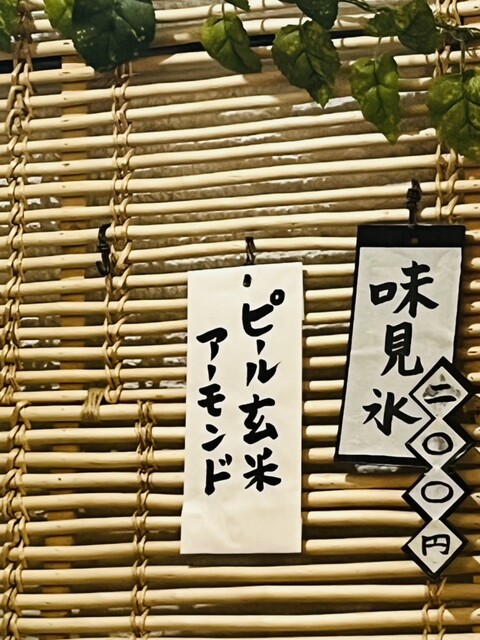 味見氷
二〇〇円
・ピール玄米
アーモンド